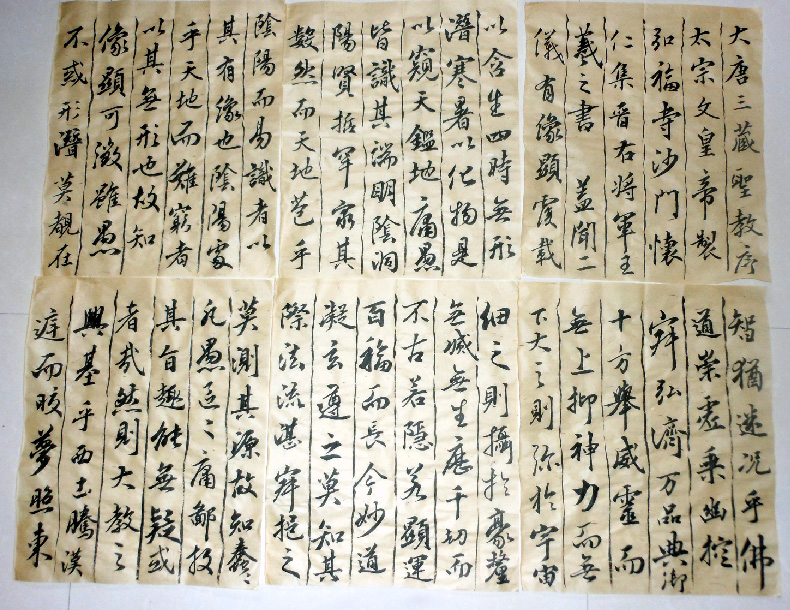 大唐三藏聖教序
太宗文皇帝製
弘福寺沙門懷
仁集晉右將軍王
羲之書 蓋聞二
儀有像顯覆載
以含生四時無形
潛寒暑以化物是
以窺天鑑地庸愚
皆識其端明陰洞
陽賢哲罕窮其
數然而天地苞乎
陰陽而易識者以
其有像也陰陽處
乎天地而難窮者
以其無形也故知
像顯可徵雖愚
不惑形潛莫覩在
智猶迷況乎佛
道崇虛乘幽控
寂弘濟万品典御
十方舉威靈而
無上抑神力而無
下大之則彌於宇宙
細之則攝於豪釐
無滅無生歷千劫而
不古若隱若顯運
百福而長今妙道
凝玄遵之莫知其
際法流湛寂挹之
莫測其源故知蠢蠢
凡愚區區庸鄙投
其旨趣能無疑或
者哉然則大教之
興基乎西土騰漢
庭而皎夢照東